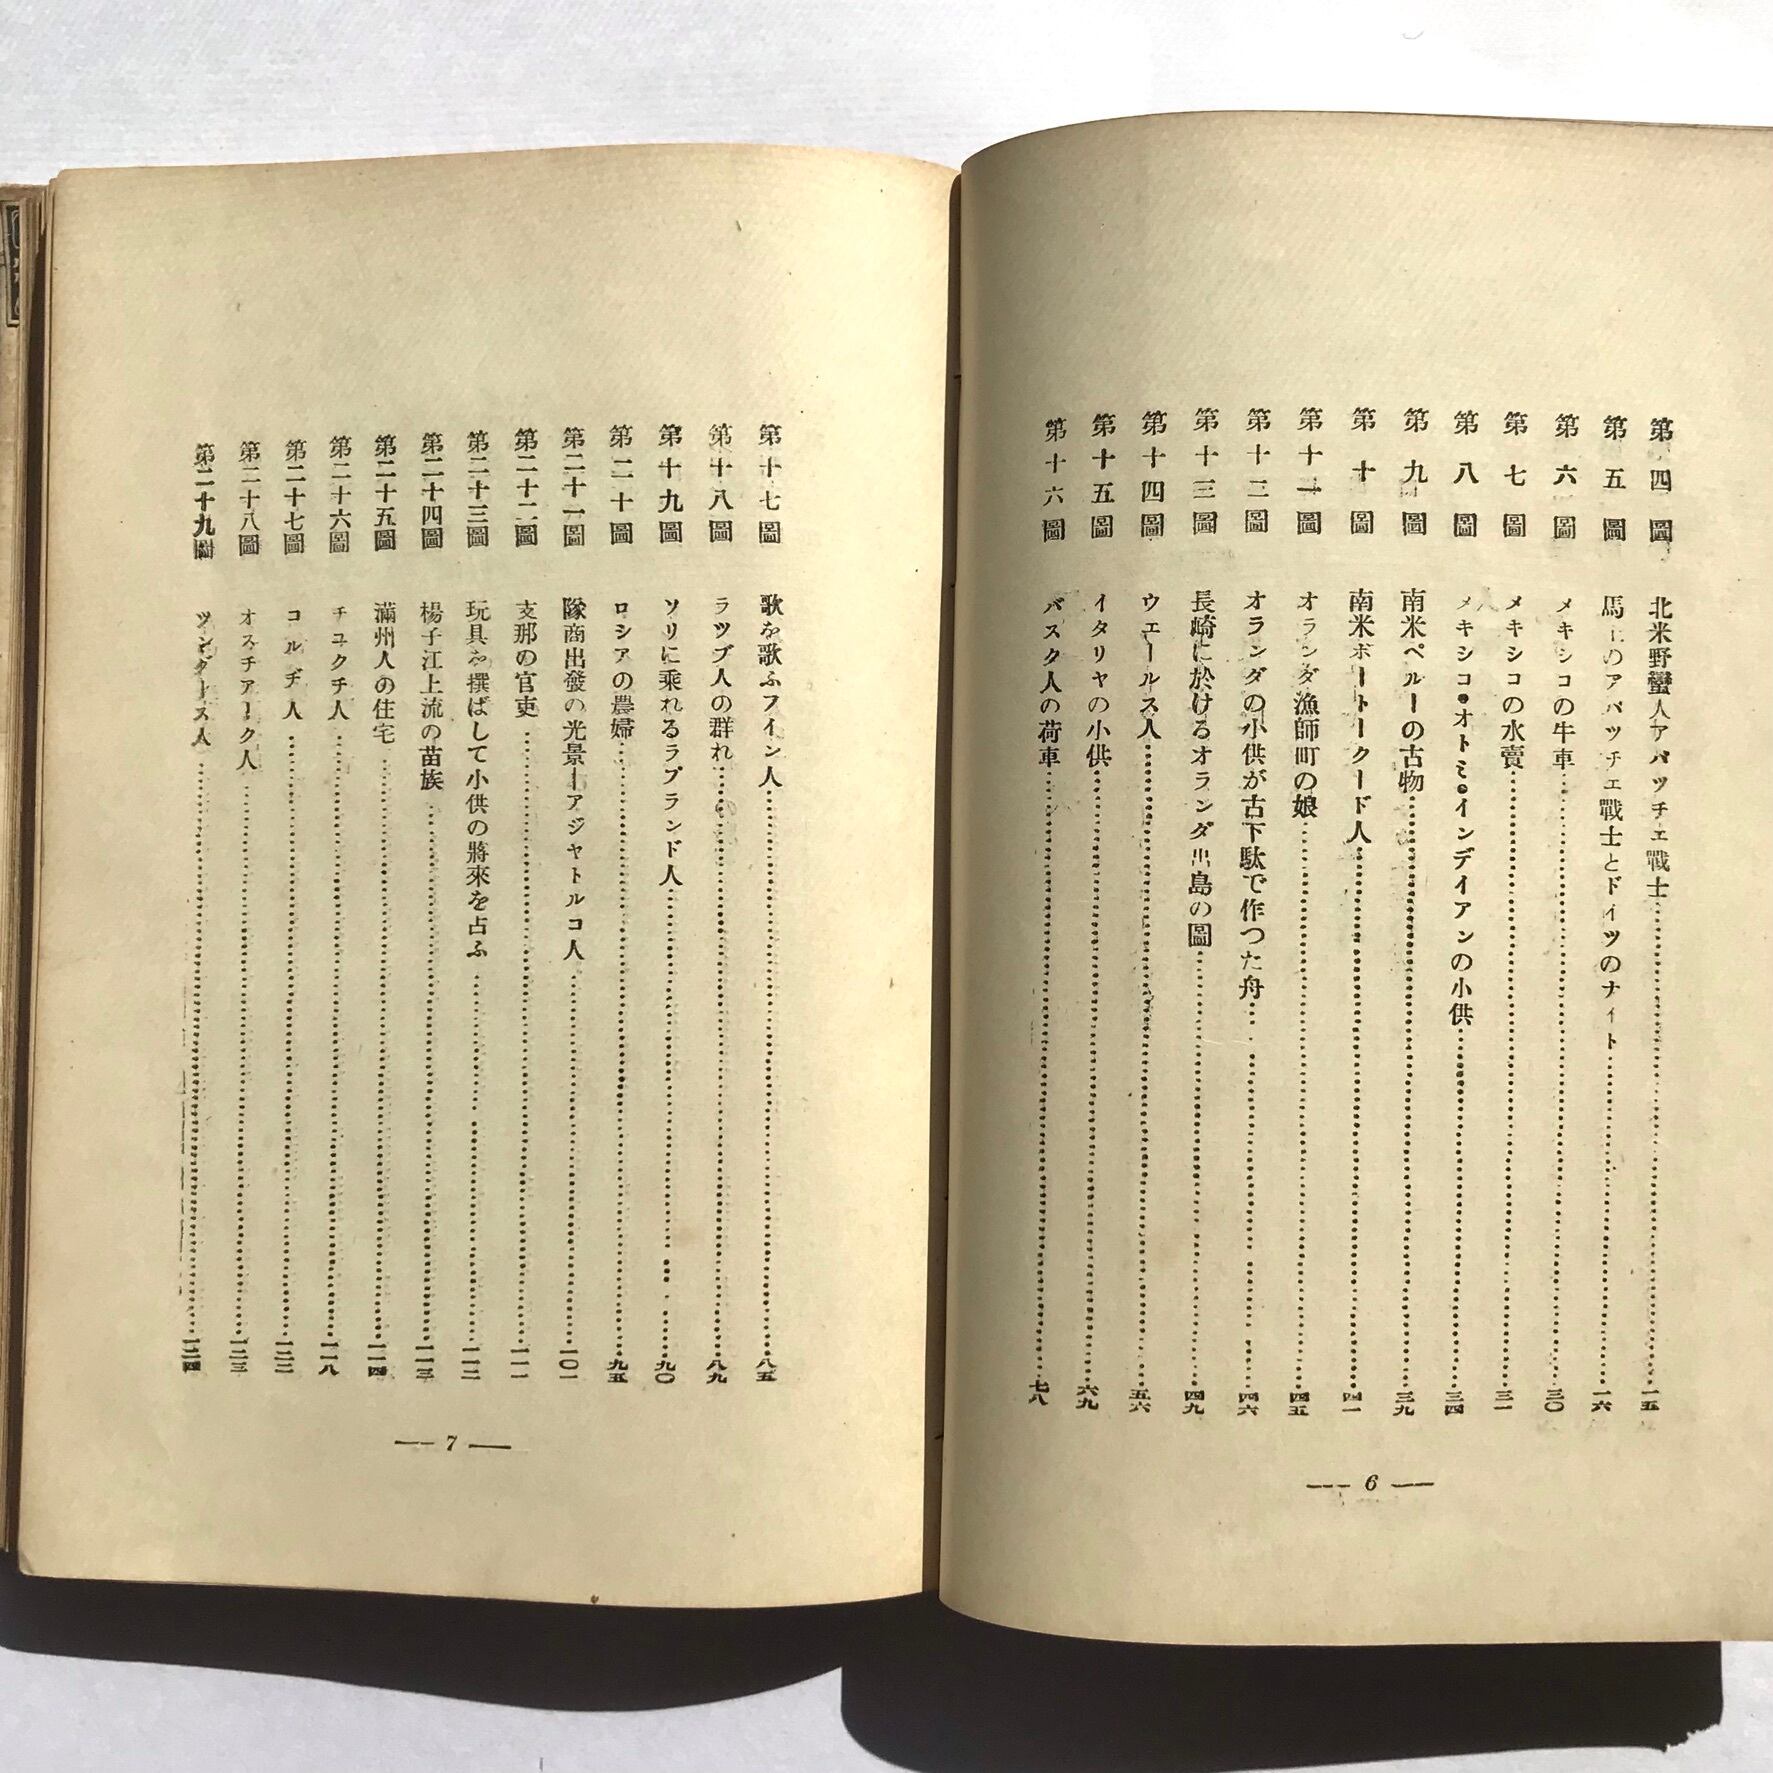 第四圖 北米野蠻人アパッチェ戰士……一五
第五圖 馬上のアパッチェ戰士とドイツのナイト……一六
第六圖 メキシコの牛車……三〇
第七圖 メキシコの水賣……三一
第八圖 メキシコ・オトミ・インデイアンの小供……三四
第九圖 南米ペルーの古物……三九
第十圖 南米ボートークード人……四一
第十一圖 オランダ漁師町の娘……四五
第十二圖 オランダの小供が古下駄で作つた舟……四六
第十三圖 長崎に於けるオランダ出島の圖……四九
第十四圖 ウェールス人……五六
第十五圖 イタリヤの小供……六九
第十六圖 バスク人の荷車……七八
— 6 —
第十七圖 歌を歌ふフイン人……八五
第十八圖 ラツプ人の群れ……八九
第十九圖 ソリに乘れるラプランド人……九〇
第二十圖 ロシアの農婦……九五
第二十一圖 隊商出發の光景ーアジヤトルコ人……一〇一
第二十二圖 支那の官吏……一一一
第二十三圖 玩具を撰ばして小供の將來を占ふ……一一二
第二十四圖 楊子江上流の苗族……一一三
第二十五圖 滿州人の住宅……一一四
第二十六圖 チユクチ人……一一八
第二十七圖 コルヂ人……一二二
第二十八圖 オスチアーク人……一二三
第二十九圖 ツングース人……一二四
— 7 —